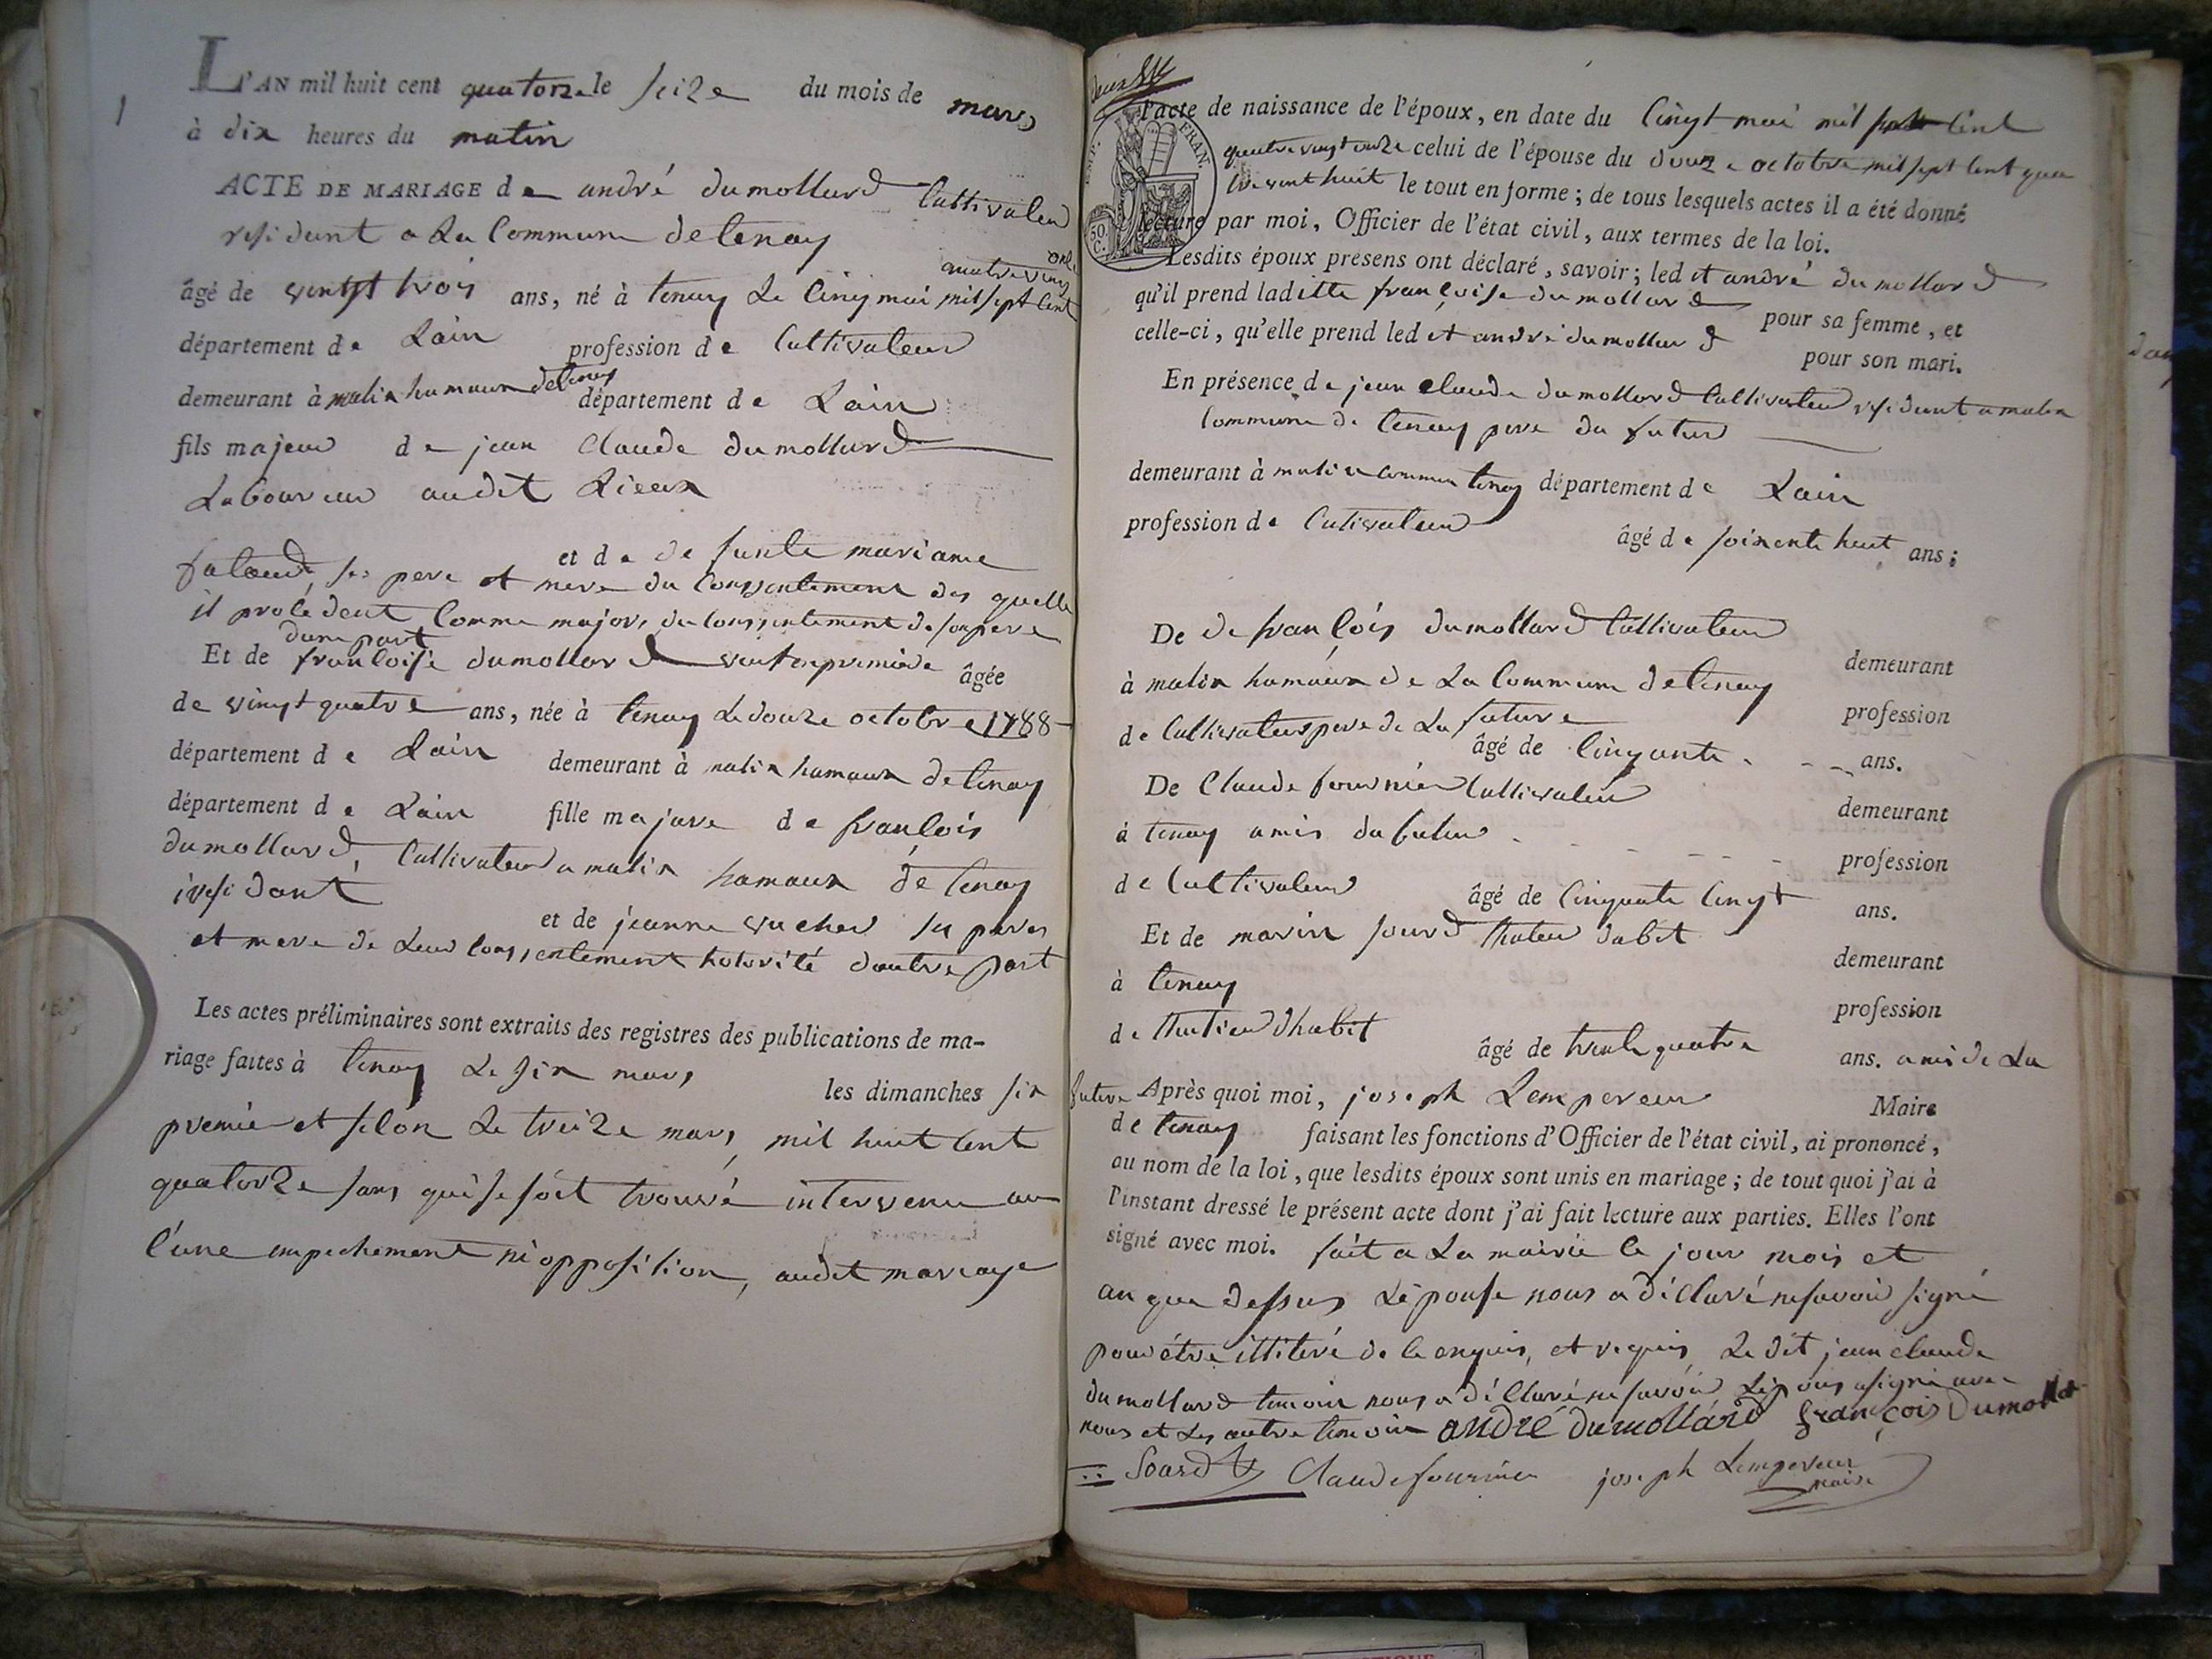 1
L'AN mil huit cent quatorze le seize du mois de mars
à dix heures du matin
ACTE DE MARIAGE de andré dumollard Cultivateur
residant a La Commune de tenay
âgé de vingt trois ans, né à tenay Le cinq mai mil sept cent quatre vingt onze
département de Lain profession de Cultivateur
demeurant à malix hamaux de tenay département de Lain
fils majeur de jean Claude dumollard
Laboureur audit Lieux
et de defunte mariane
falaud, ses pere et mere du Conssentement des quelle
il procédent Comme major, du conssentement de son pere
dune part
Et de francoise dumollard âgée
de vingt quatre ans, née à tenay Le douze octobre 1788
département de Lain demeurant à malix hamaux de tenay
département de Lain fille majure de francois
dumollard, Cultivateur a malix hamaux de tenay
iresidant
et de jeanne vucher ses peres
et mere de Leur conssentement hotorité dautre part
Les actes préliminaires sont extraits des registres des publications de ma-
riage faites à tenay Le six mars les dimanches six
premier et selon Le treize mars, mil huit cent
quatorze sans qui se soit trouvé intervenu au
l'une empechement ni opposition, audit mariage
l'acte de naissance de l'époux, en date du Cinq mai mil sept cent
quatre vingt onze celui de l'épouse du douze octobre mil sept cent qua
tre vint huit le tout en forme ; de tous lesquels actes il a été donné
lecture par moi, Officier de l'état civil, aux termes de la loi.
FRAN.
50. C.
Lesdits époux présens ont déclaré, savoir ; led it andré dumollard
qu'il prend laditte françoise dumollard pour sa femme, et
celle-ci, qu'elle prend led it andré dumollard pour son mari.
En présence de jean claude dumollard Cultivateur residant a malix
Commune de tenay pere du futur
demeurant à malix commune tenay département de Lain
profession de Cutivateur âgé de soixente huit ans ;
De de françois dumollard Cultivateur demeurant
à malix hamaux de La Commune de tenay profession
de Cultivateur pere de La future âgé de cinqante ans.
De Claude fournier Cultivateur demeurant
à tenay amis du futur profession
de Cultivateur âgé de Cinquante Cinq ans.
Et de marin sourd thaleur dabit demeurant
à tenay profession
de thalieur dhabit âgé de trente quatre ans. amis de La
future Après quoi moi, joseph Lempereur Maire
de tenay faisant les fonctions d'Officier de l'état civil, ai prononcé,
au nom de la loi, que lesdits époux sont unis en mariage ; de tout quoi j'ai à
l'instant dressé le présent acte dont j'ai fait lecture aux parties. Elles l'ont
signé avec moi. fait a La mairie le jour mois et
an que dessus Lépouse nous a déClaré ne savoir signé
pour étre illiteré de le enquis, et requis Le dit jean claude
dumollard temoin nous a déClaré ne savoir Lépous a signé avec
nous et Les autre temoin andré dumollard françois Dumollar
Sourd Claude fournier joseph Lempereur maire